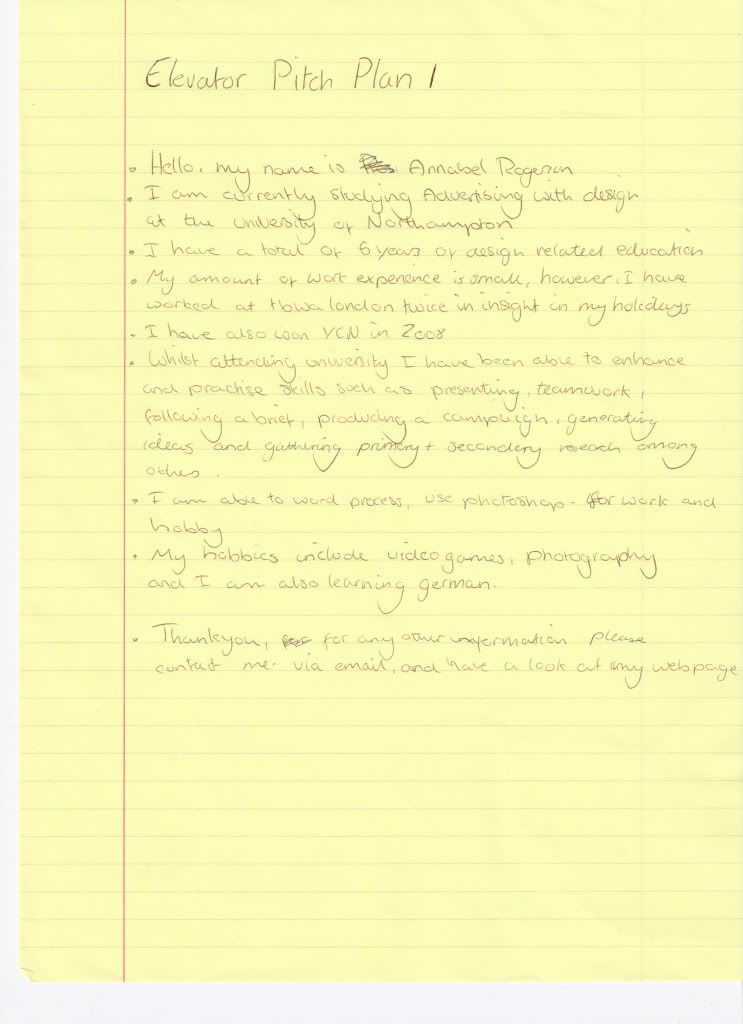 Elevator Pitch Plan 1
• Hello, my name is Annabel Rogerson
• I am currently studying Advertising with design
at the university of Northampton
• I have a total of 6 years of design related education
• My amount of work experience is small, however, I have
worked at tbwa london twice in insight in my holidays
• I have also won YCN in 2008
• Whilst attending university I have been able to enhance
and practise skills such as presenting, teamwork,
following a brief, producing a campaign, generating
ideas and gathering primary + secondary reseach among
others.
• I am able to word process, use photoshop - for work and
hobby
• My hobbies include video games, photography
and I am also learning german.
• Thankyou, for any other information please
contact me via email, and have a look at my webpage